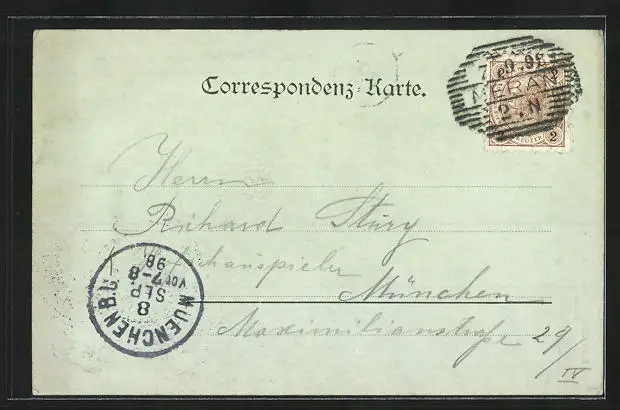 7.9.98
MERAN
2.N
2 2
KREUZER 2
Correspondenz-Karte.
Herrn
Richard Stury
Hofschauspieler
München
Maximilianstraße 29/IV
MUENCHEN B.C.
8
SEP
VOR 7-8
98